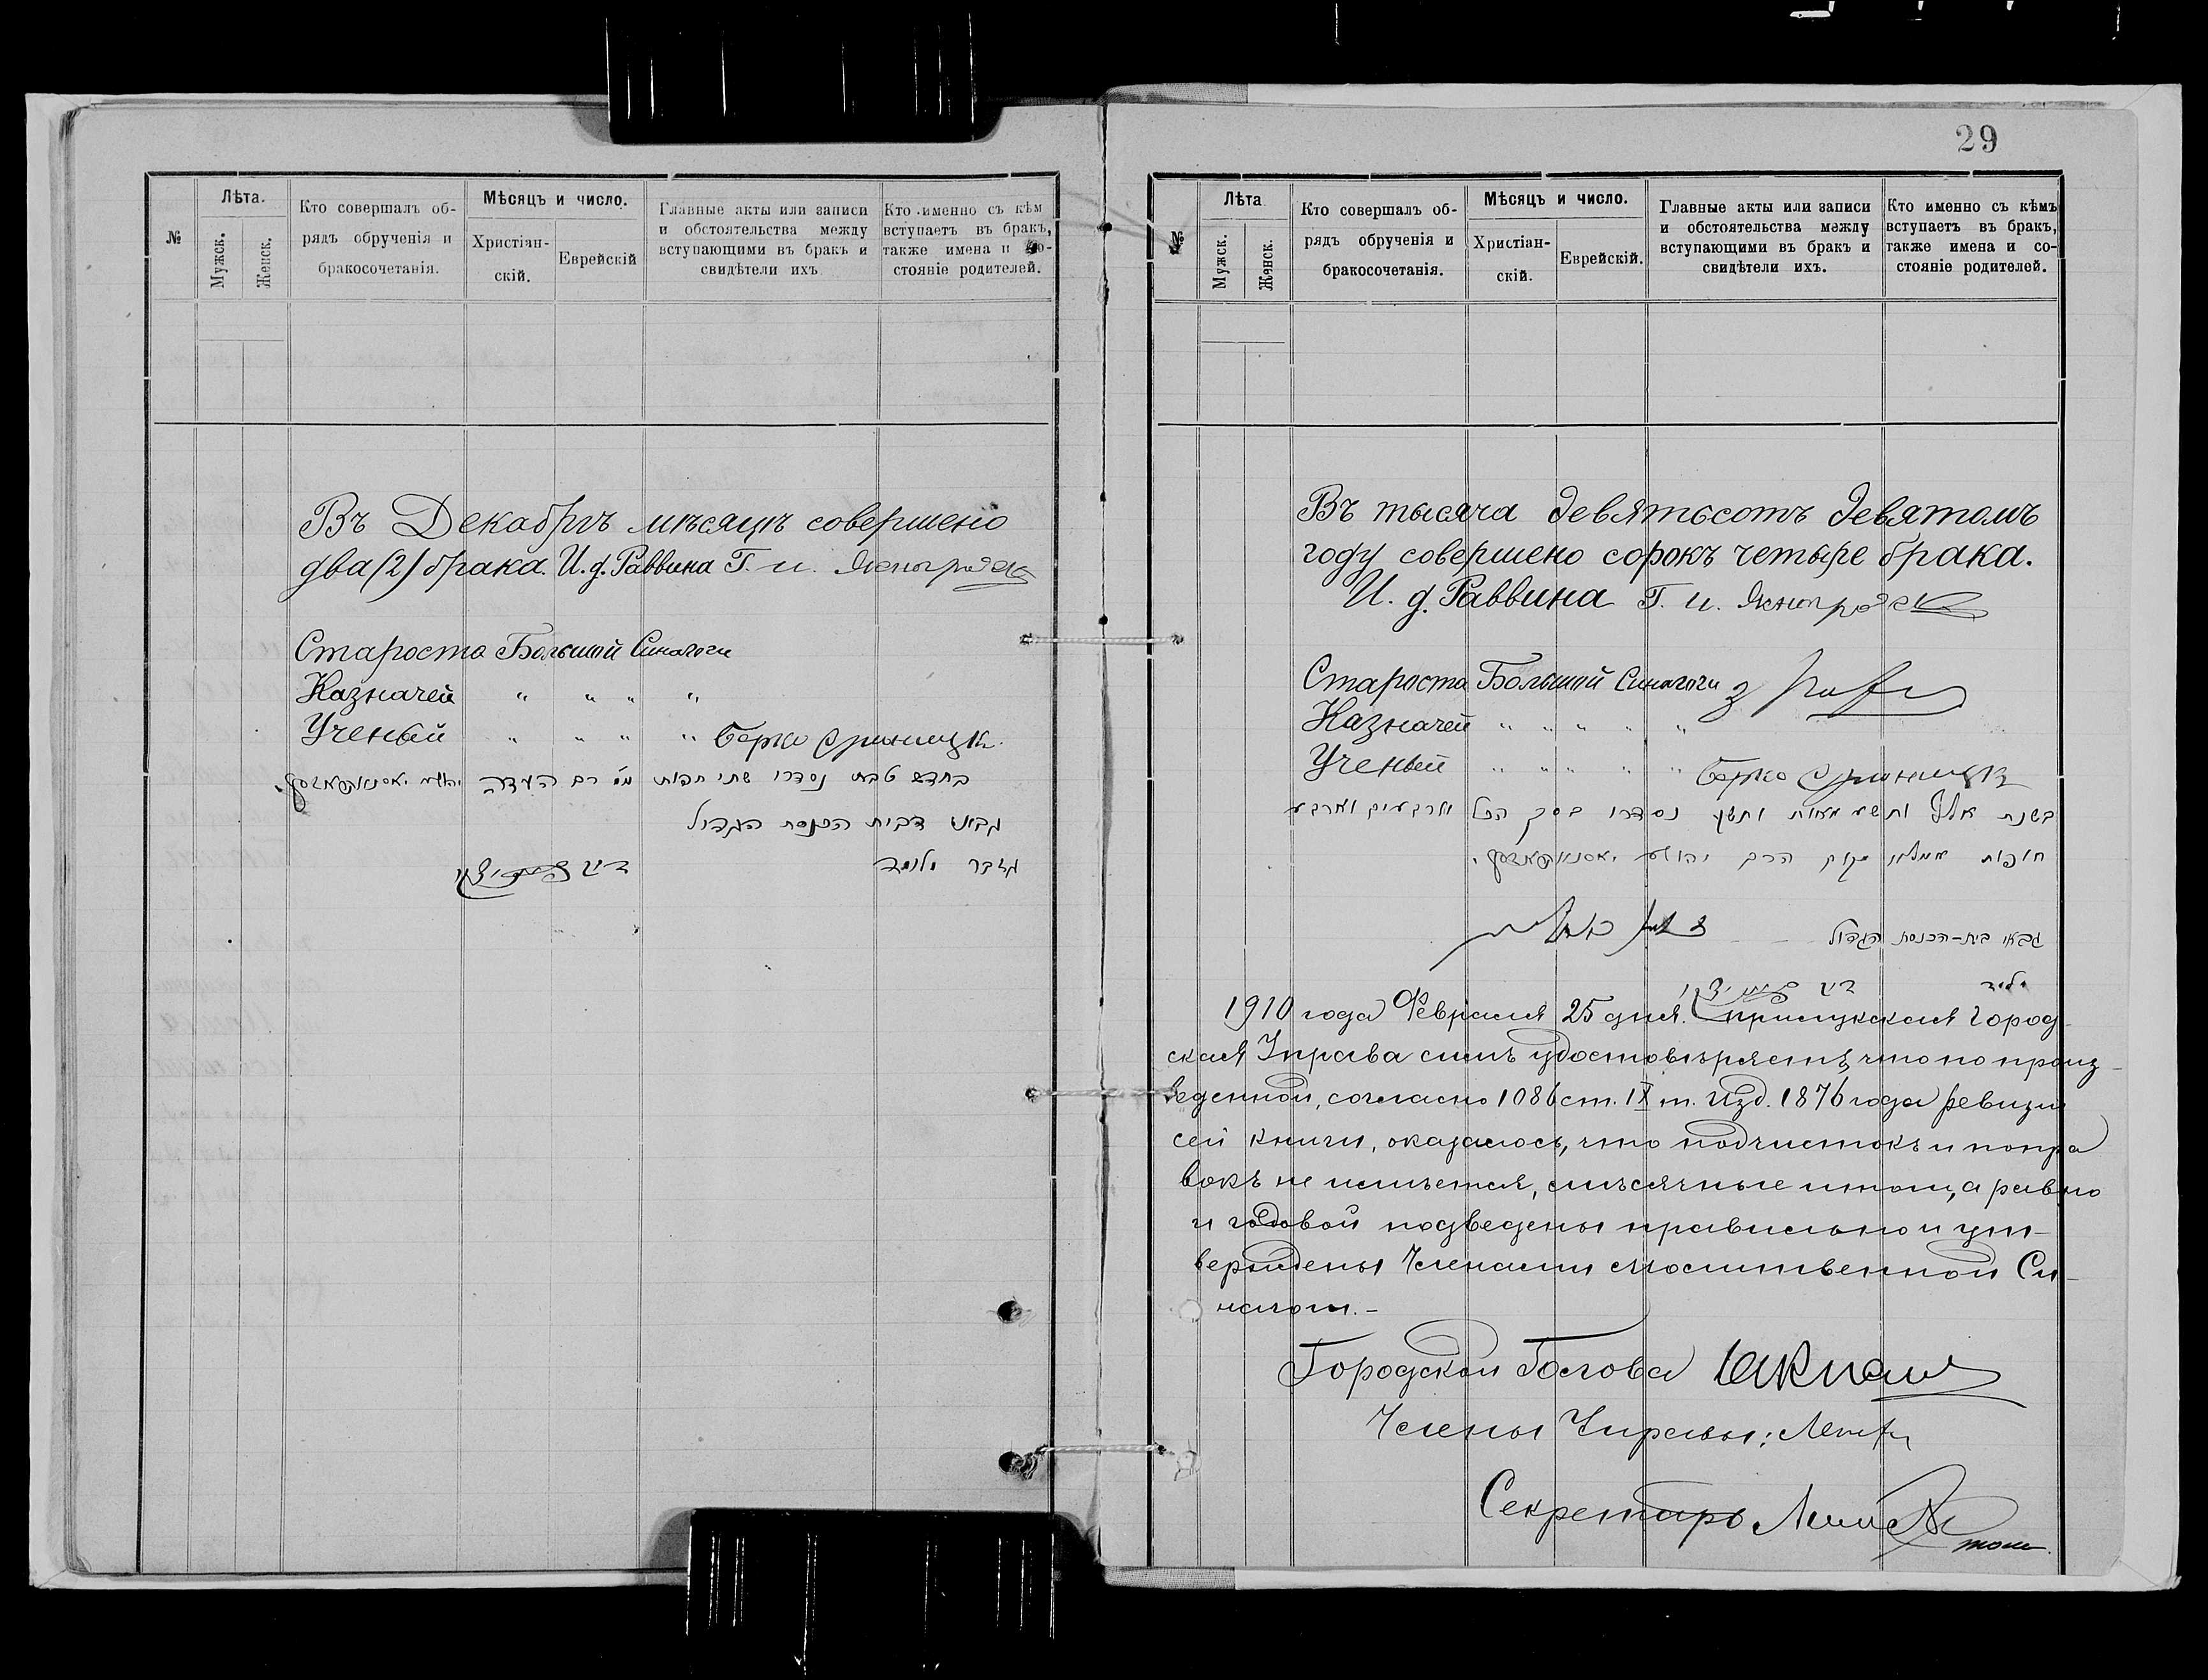 №
Лѣта.
Мужск.
Женск.
Кто совершалъ об-
рядъ обрученія и
бракосочетанія.
Мѣсяцъ и число.
Христіан-
скій.
Еврейскій
Главные акты или записи
и обстоятельства между
вступающими въ бракъ и
свидѣтели ихъ
Кто именно съ кѣм
вступаетъ въ бракъ,
также имена и со-
стояніе родителей.
Въ Декабрѣ мѣсяцѣ совершено
два (2) брака. И. д. Раввина Г. И.
Староста Большой Синагоги
Казначей " " " "
Ученый " " " " Берко
בחדש טבת נסדרו שתי חפות רם העדה
גבאי דבית הכנסת הגדול
29
№
Лѣта
Мужск.
Женск.
Кто совершалъ об-
рядъ обрученія и
бракосочетанія.
Мѣсяцъ и число.
Христіан-
скій.
Еврейскій.
Главные акты или записи
и обстоятельства между
вступающими въ бракъ и
свидѣтели ихъ.
Кто именно съ кѣмъ
вступаетъ въ бракъ,
также имена и со-
стояніе родителей.
Въ тысяча девятьсотъ девятомъ
году совершено сорокъ четыре брака.
И. д. Раввина Г. И.
Староста Большой Синагоги
Казначей " " " " "
Ученый " " " " " Берко
בשנת אלף ותשע מאות ותשע נסדרו בסך הכל ארבעים וארבע
חופות הרב יהושע
גבאי בית-הכנסת הגדול
1910 года Февраля 25 дня. Прилукская Город-
ская Управа симъ удостовѣряетъ, что по произ-
веденной, согласно 1086 ст. IX т. Изд. 1876 года ревизіи
сей книги, оказалось, что подчистокъ и попра
вокъ не имѣется, мѣсячные итоги, а равно
и годовой подведены правильно и ут-
верждены Членами мѣстной Си-
нагоги.-
Городской Голова
Члены Управы:
Секретарь